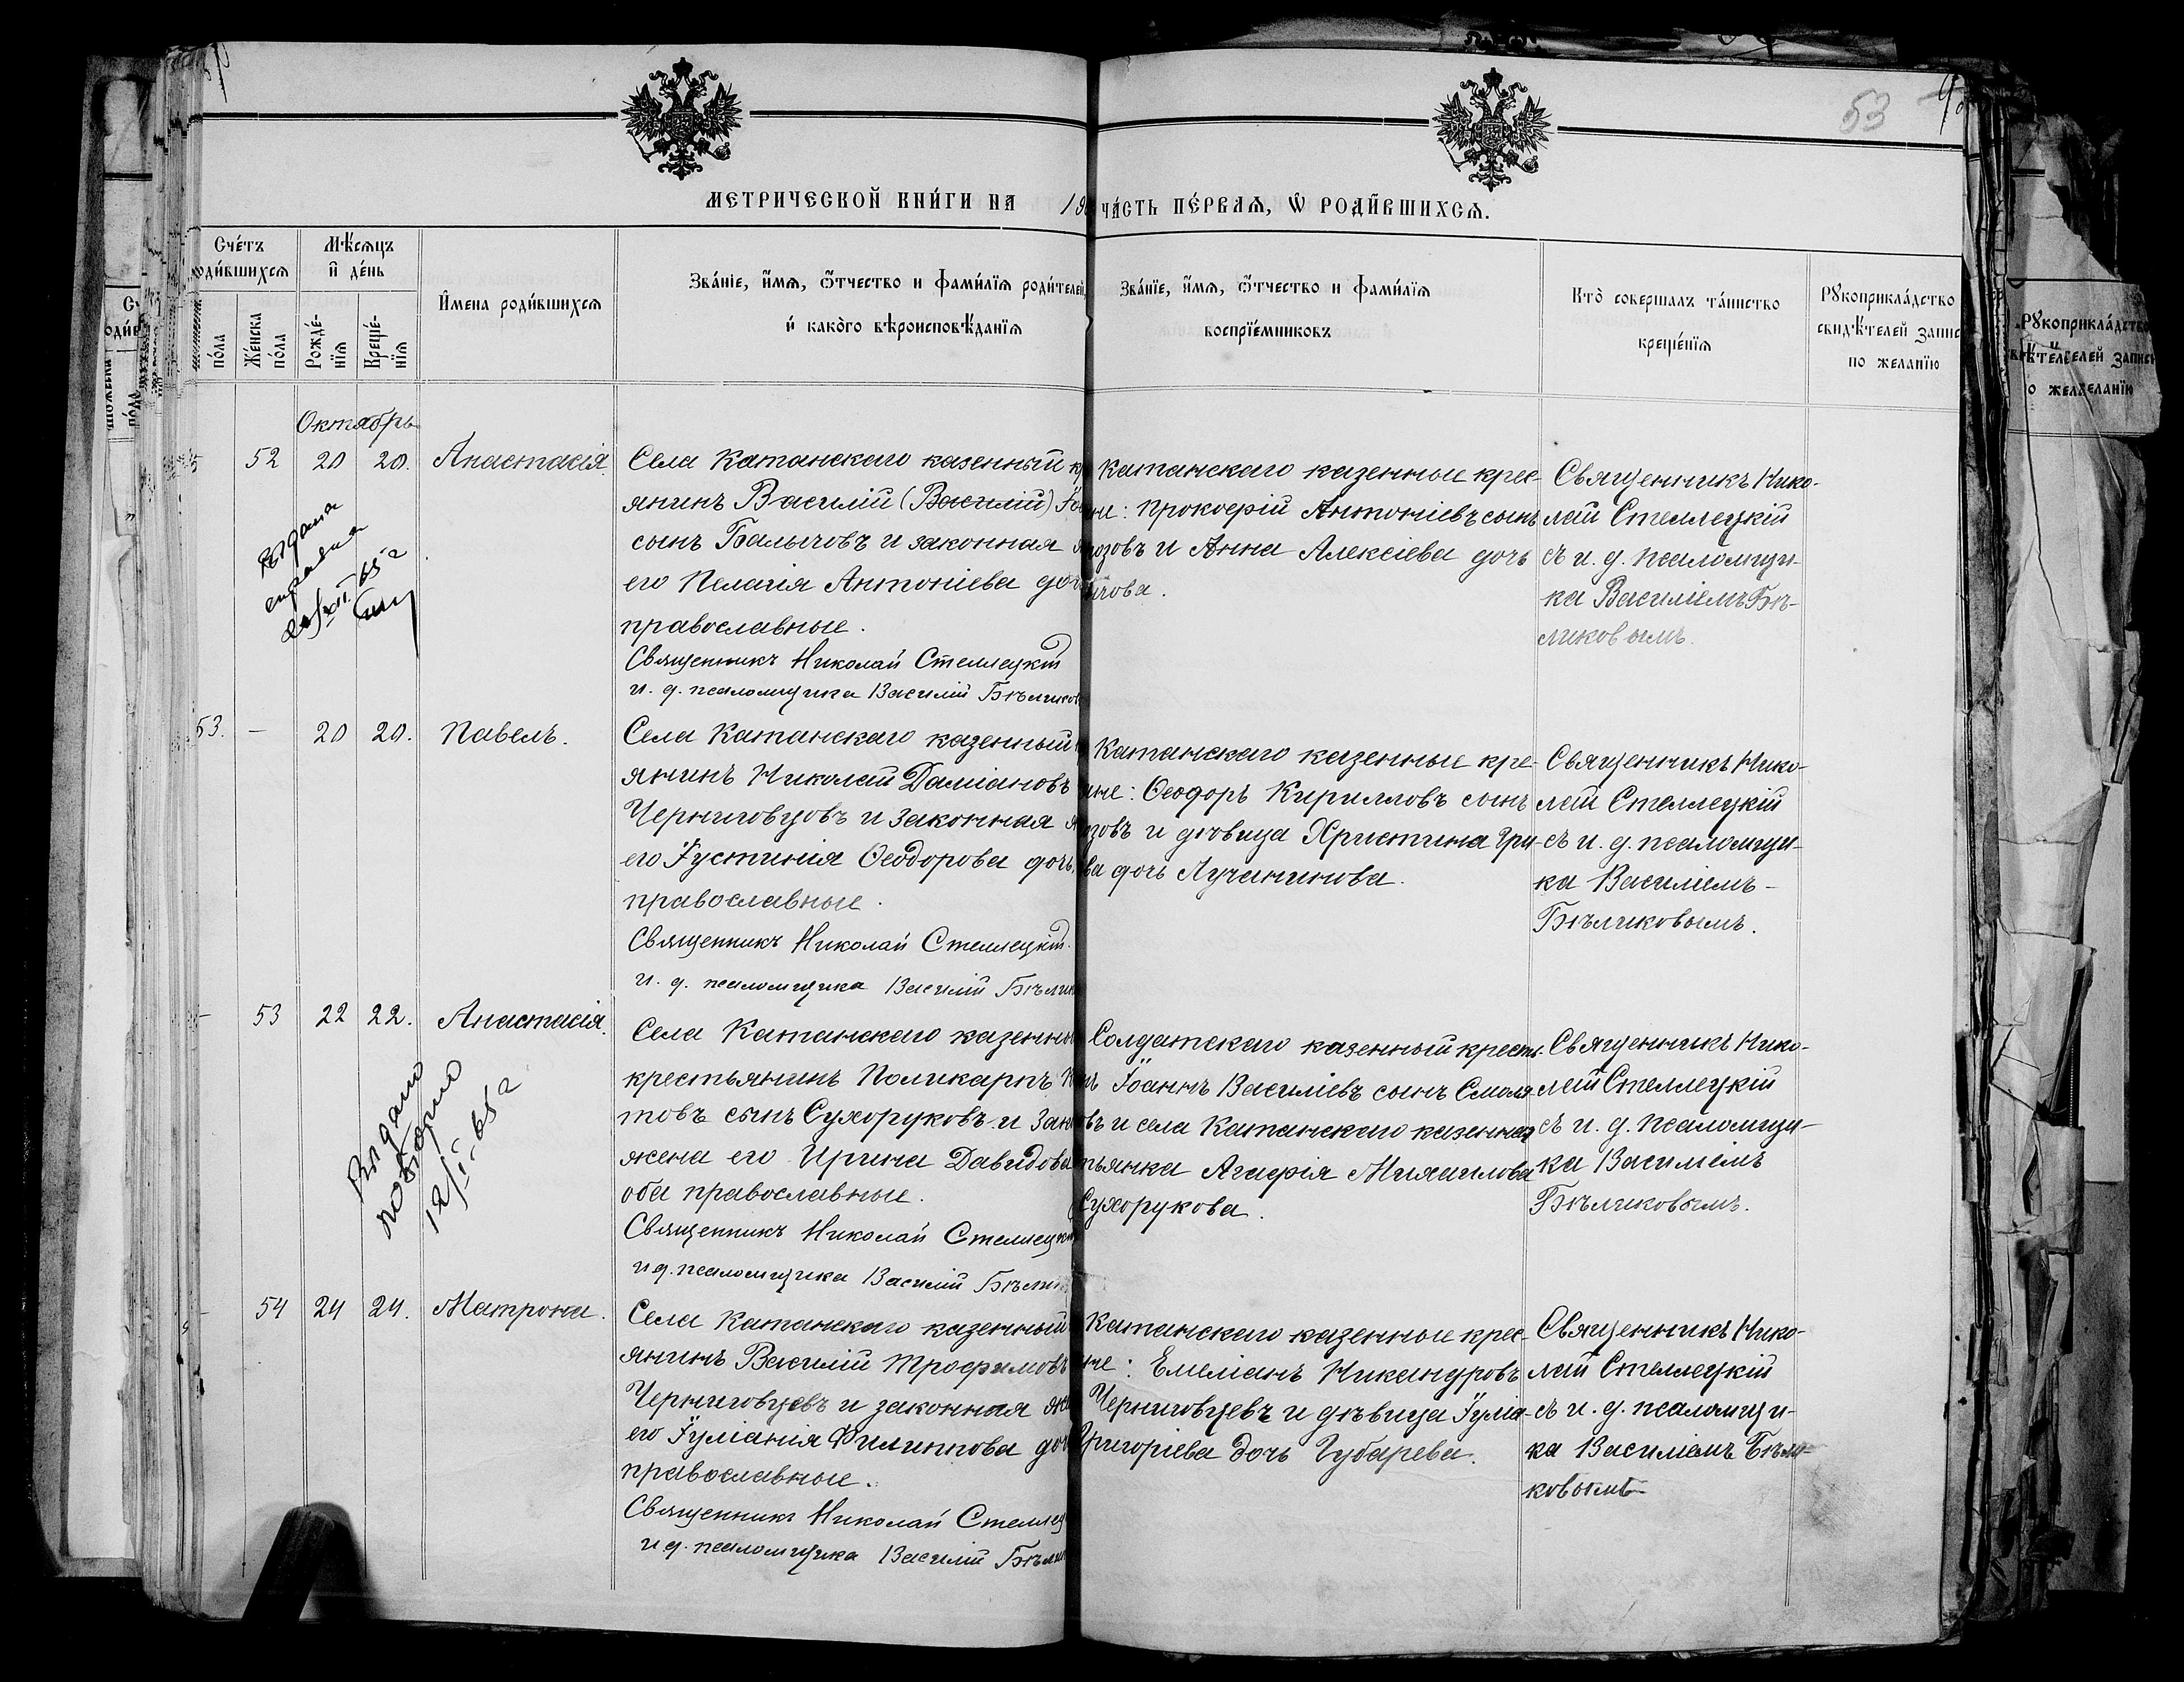 53
МЕТРИЧЕСКОЙ КНИ́ГИ НА 19
ЧА́СТЬ ПЕ́РВАѦ, Ѡ РОДИ́ВШИХСѦ.
Сче́тъ
оди́вшихсѧ
Мѣ́сѧцъ
и҆ де́нь
И҆мена роди́вшихсѧ
Зва́нїе, и҆́мѧ, ѻ҆́тчество и фами́лїѧ роди́телей,
и҆ како́го вѣроисповѣ́данїѧ
Зва́нїе, и҆́мѧ, ѻ҆́тчество и фами́лїѧ
воспрїе́мниковъ
Кто̀ совершалъ та́инство
креще́нїѧ
Рꙋкоприкла́дство
свидѣ́телей запис
по желанїю
по́ла
Же́нска
по́ла
Рожде́-
нїѧ
Креще́-
нїѧ
Октябрь
52 20 20. Анастасія
Села Катанскаго казенный кр
янинъ Василій (Василій)
сынъ Балычовъ и законная
его Пелагія Антоніева доч
православные.
Священникъ Николай Стеллецкій
и. д. псаломщика Василій Бѣликов
Катанскаго казенные крес-
не: Прокофій Антоніевъ сынъ
озовъ и Анна Алексіева дочь
чова.
Священникъ Нико-
лай Стеллецкій
съ и. д. псаломщи-
ка Василіемъ Бѣ-
ликовымъ.
Выдана
справка
65 г
53. — 20 20. Павелъ.
Села Катанскаго казенный
янинъ Николай Даміановъ
Черниговцовъ и законная
его Іустинія Ѳеодорова дочь,
православные.
Священникъ Николай Стеллецкій.
и. д. псаломщика Василій Бѣлик
Катанскаго казенные кре-
не: Ѳеодоръ Кирилловъ сынъ
озовъ и дѣвица Христина Гри-
ва дочь Лучанинова.
Священникъ Нико-
лай Стеллецкій
съ и. д. псаломщи-
ка Василіемъ-
Бѣликовымъ.
53 22 22. Анастасія.
Села Катанскаго казенны
крестьянинъ Поликарпъ
товъ сынъ Сухоруковъ и Зак
жена его Ирина Давидова
оба православные.
Священникъ Николай Стеллецк
и д. псаломщика Василій Бѣли
Солдатскаго казенный кресть-
Іоаннъ Василіевъ сынъ Смоля-
въ и села Катанскаго казенная
тьянка Агафія Михаилова
Сухорукова.
Священникъ Нико-
лай Стеллецкій
съ и. д. псаломщи-
ка Василіемъ
Бѣликовымъ.
Выдано
повторно
12/I-65 г
54 24 24. Матрона.
Села Катанскаго казенный
янинъ Василій Трофимовъ
Черниговцевъ и законная же
его Іуліанія Филиппова доч
православные.
Священникъ Николай Стеллец
и д. псаломщика Василій Бѣли
Катанскаго казенные крес-
не: Емеліанъ Никандровъ
Черниговцевъ и дѣвица Іулiа-
Григоріева дочь Губарева.
Священникъ Нико-
лай Стеллецкій
съ и. д. псаломщи-
ка Василіемъ Бѣли-
ковымъ